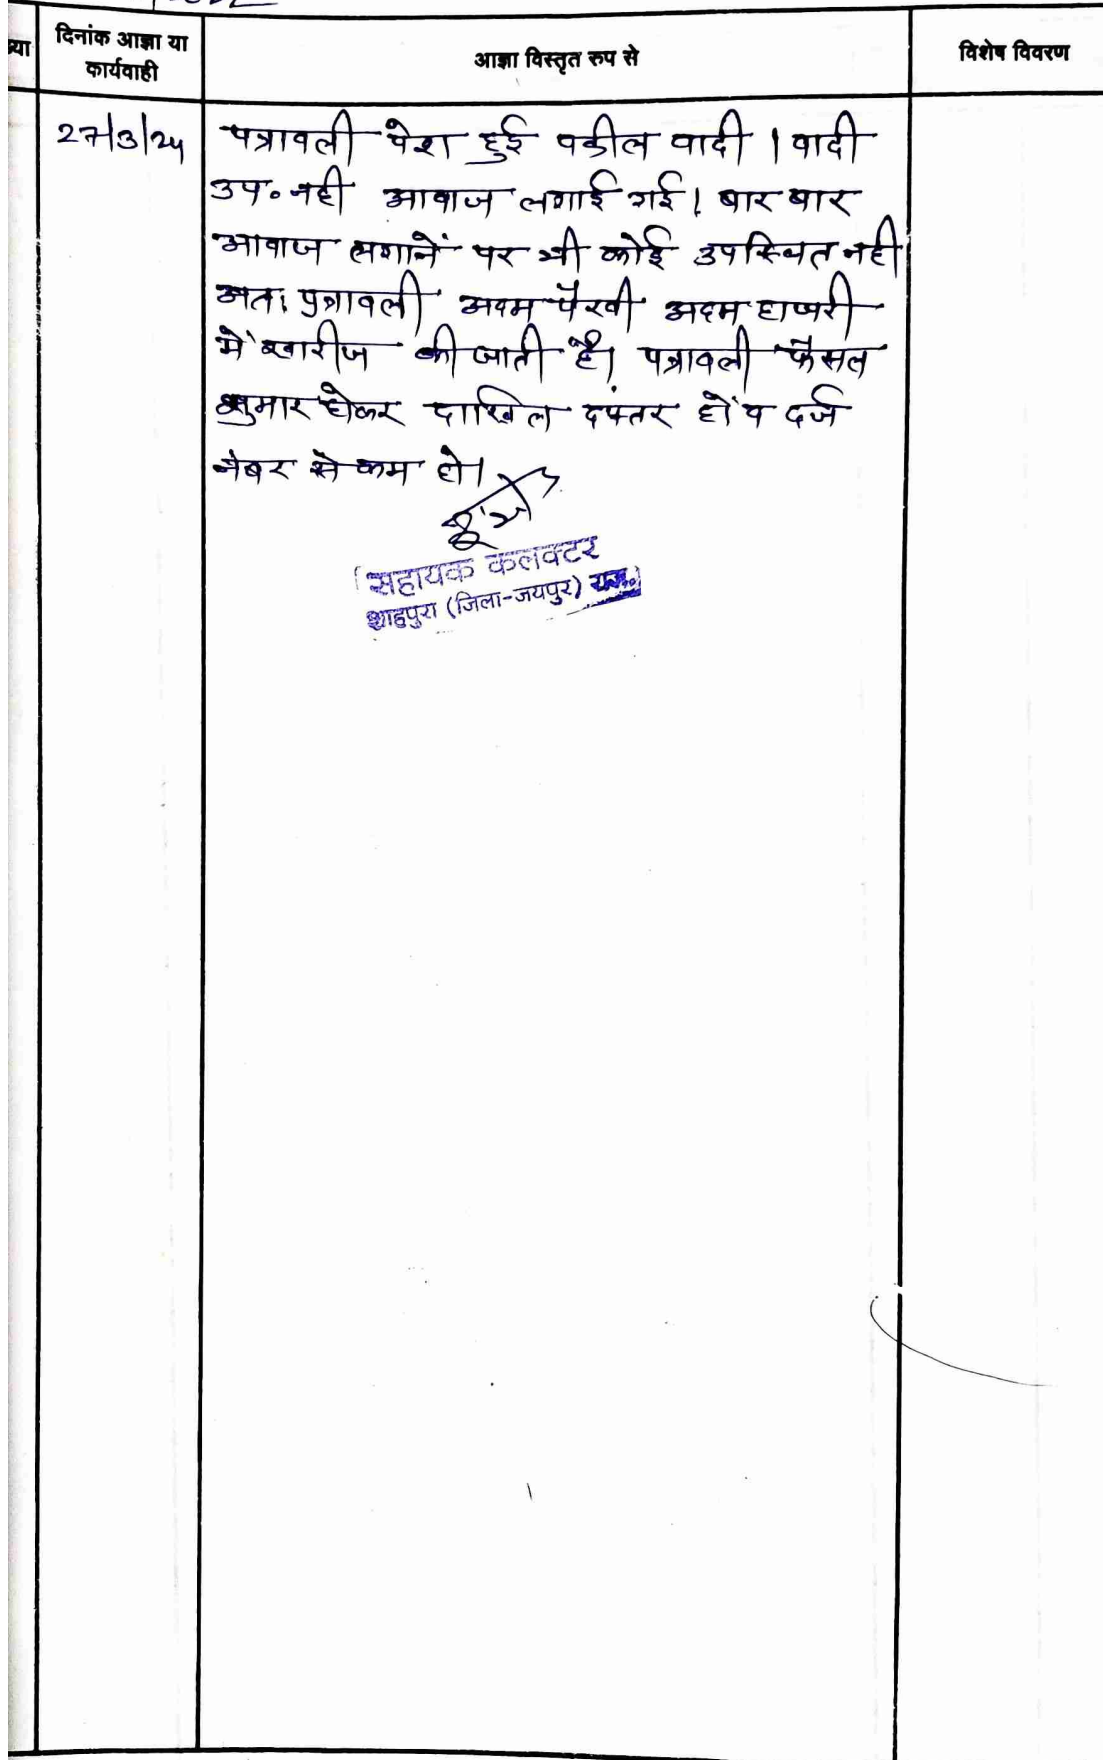 दिनांक आज्ञा या
कार्यवाही
आज्ञा विस्तृत रुप से
विशेष विवरण
27/3/24
पत्रावली पेश हुई वकील वादी । वादी
उप० नही आवाज लगाई गई। बार बार
आवाज लगानें पर भी कोई उपस्थित नही
अतः पत्रावली अदम पैरवी अदम हाजरी
में खारीज की जाती है। पत्रावली फैसल
शुमार होकर दाखिल दफ्तर हों व दर्ज
नंबर से कम हो।
सहायक कलक्टर
शाहपुरा (जिला-जयपुर) राज.